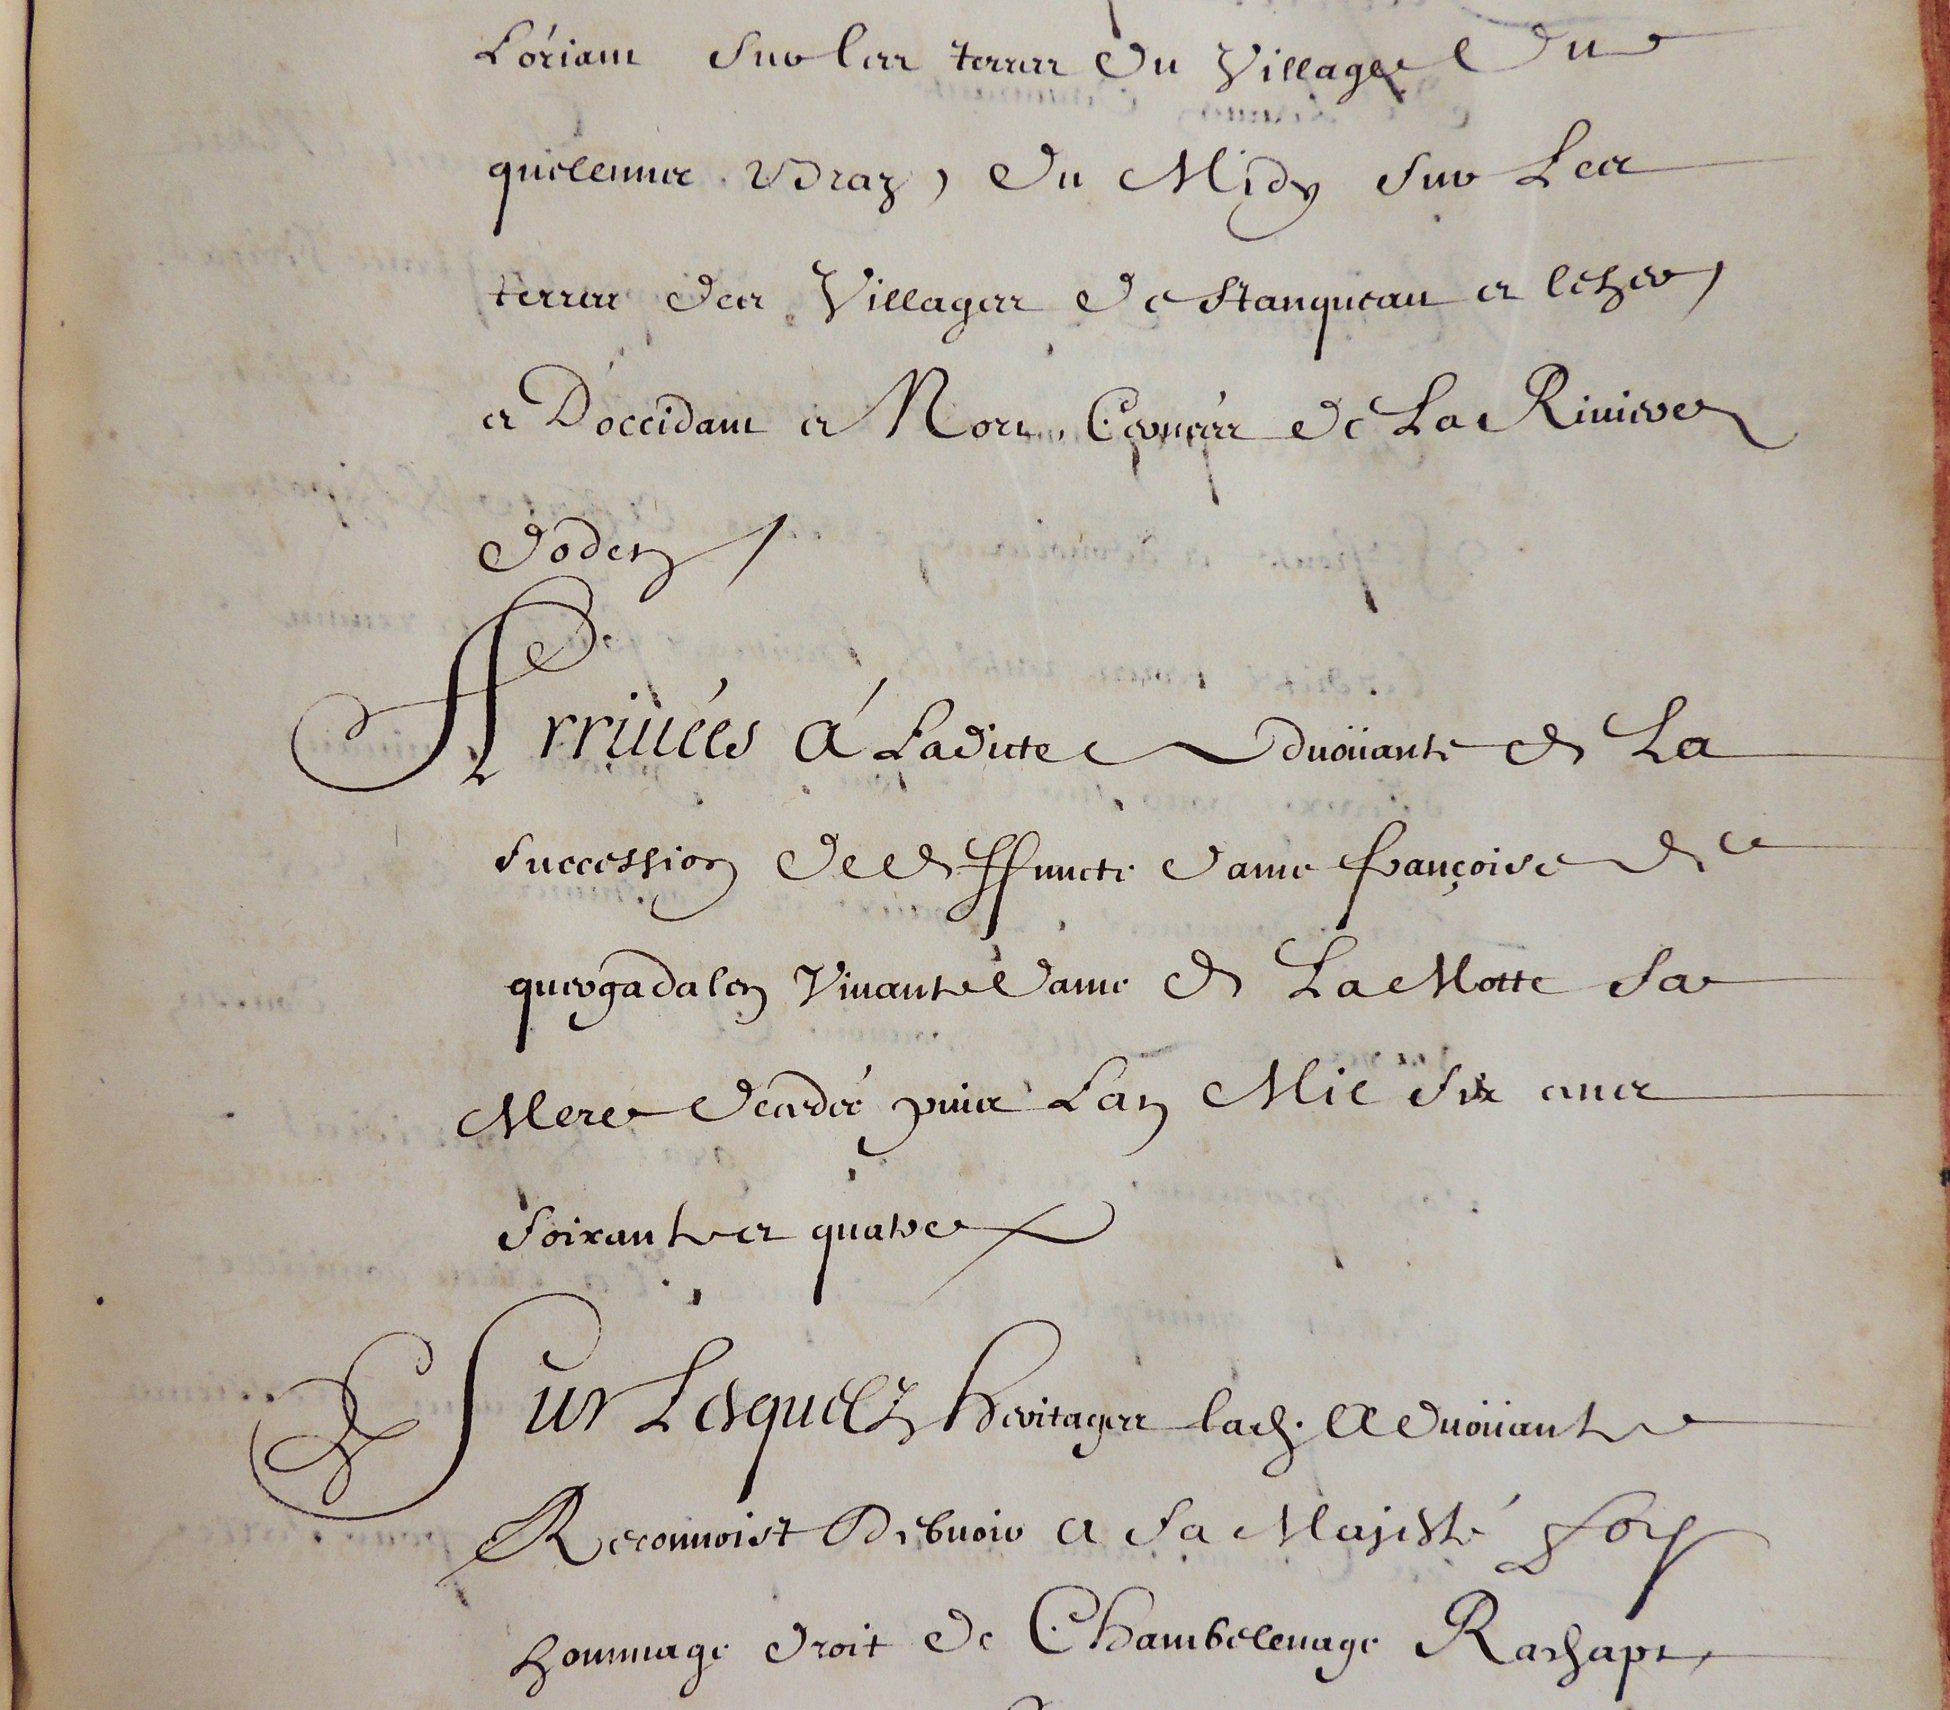 L'oriant sur les terres du Village du
quelennec Vdraz, du Midy sur Les
terres des Villages de Stanqueau et leher,
et D'occidant et Nort Cernées de La Riuiere
dodet /
Arriuées á Ladicte aduoüante de La
succession de deffuncte dame françoise de
quergadalen Viuante dame de La Motte sa
Mere decedée puis Lan Mil six cents
soixante et quatre
Sur Lesquelz heritages lad. Aduoüante
Reconnoist Debuoir a sa Majesté foy
hommage droit de Chambelenage Rachapt,